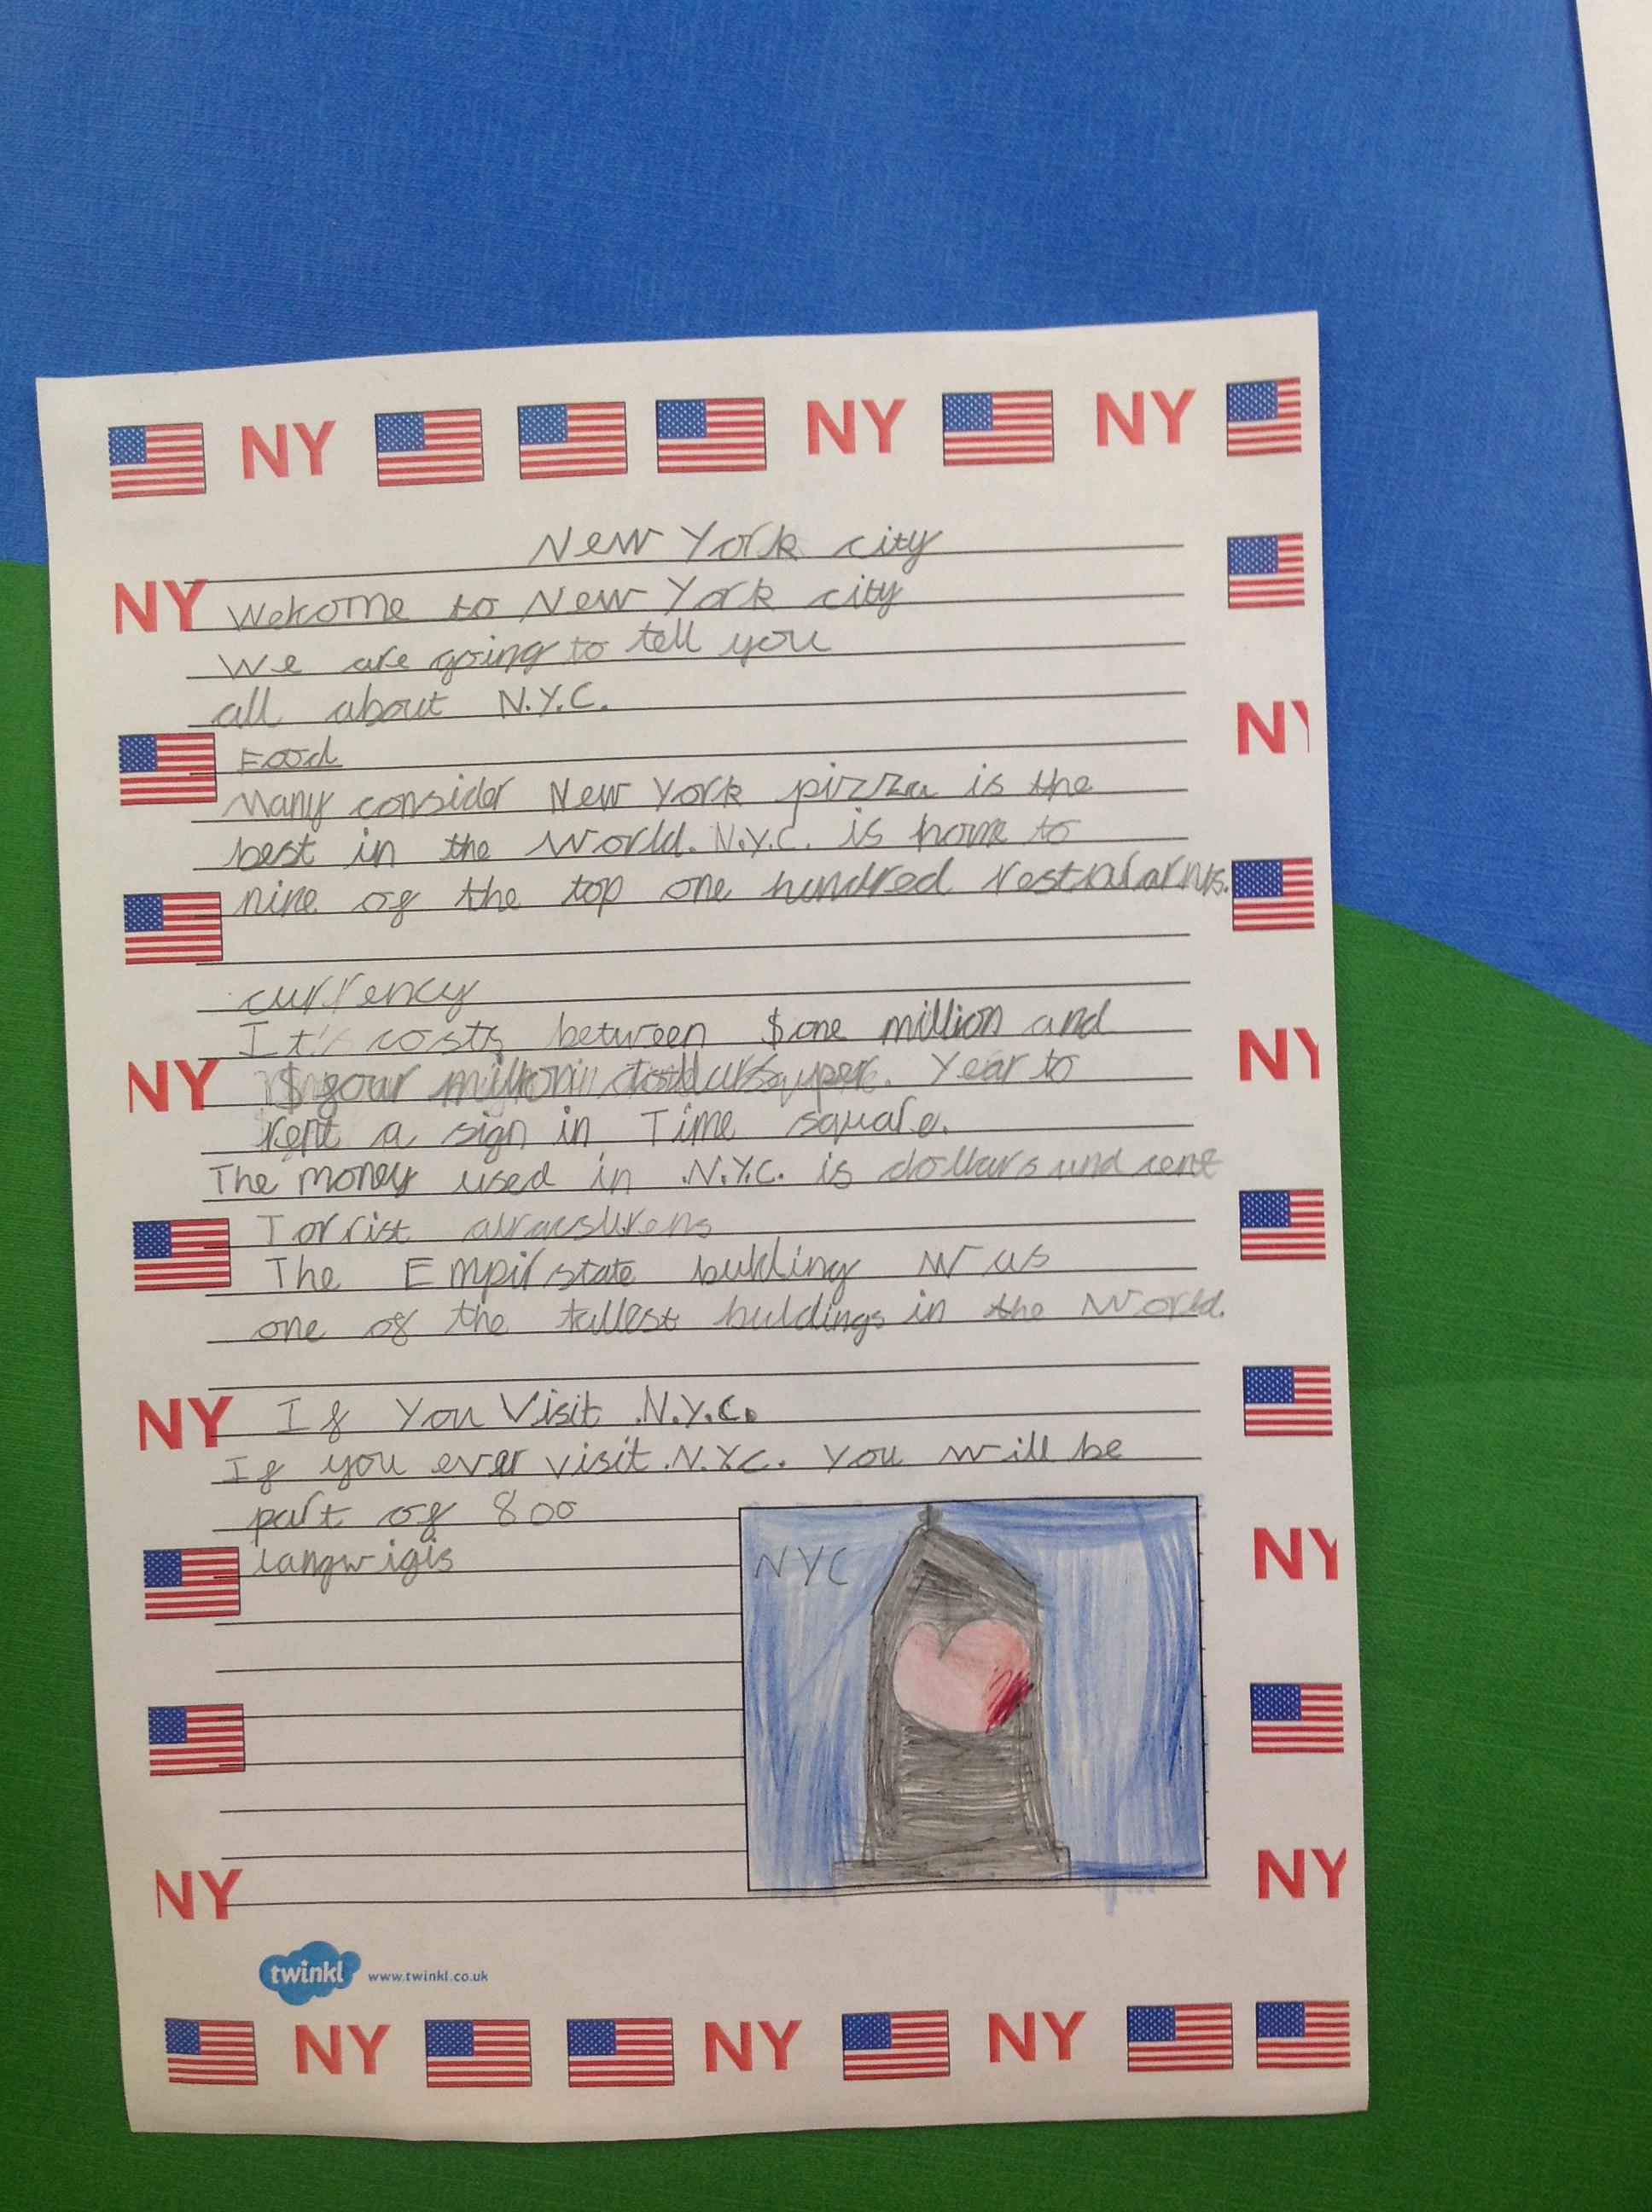 NY NY NY
New York city
NY Welcome to New York city
We are going to tell you
all about N.Y.C.
NY
Food
Many consider New York pizza is the
best in the World. N.Y.C. is home to
nine of the top one hundred
currency
It's costs between $one million and
NY $ four million per. Year to
NY
rent a sign in Time square.
The money used in N.Y.C. is dollars and cent
Torrist
The Empir state bukling was
one of the tallest buldings in the World.
NY If You Visit N.Y.C.
If you ever visit N.Y.C. you will be
part of 800
langwigis
NYC
NY
NY
NY
twinkl www.twinkl.co.uk
NY NY NY